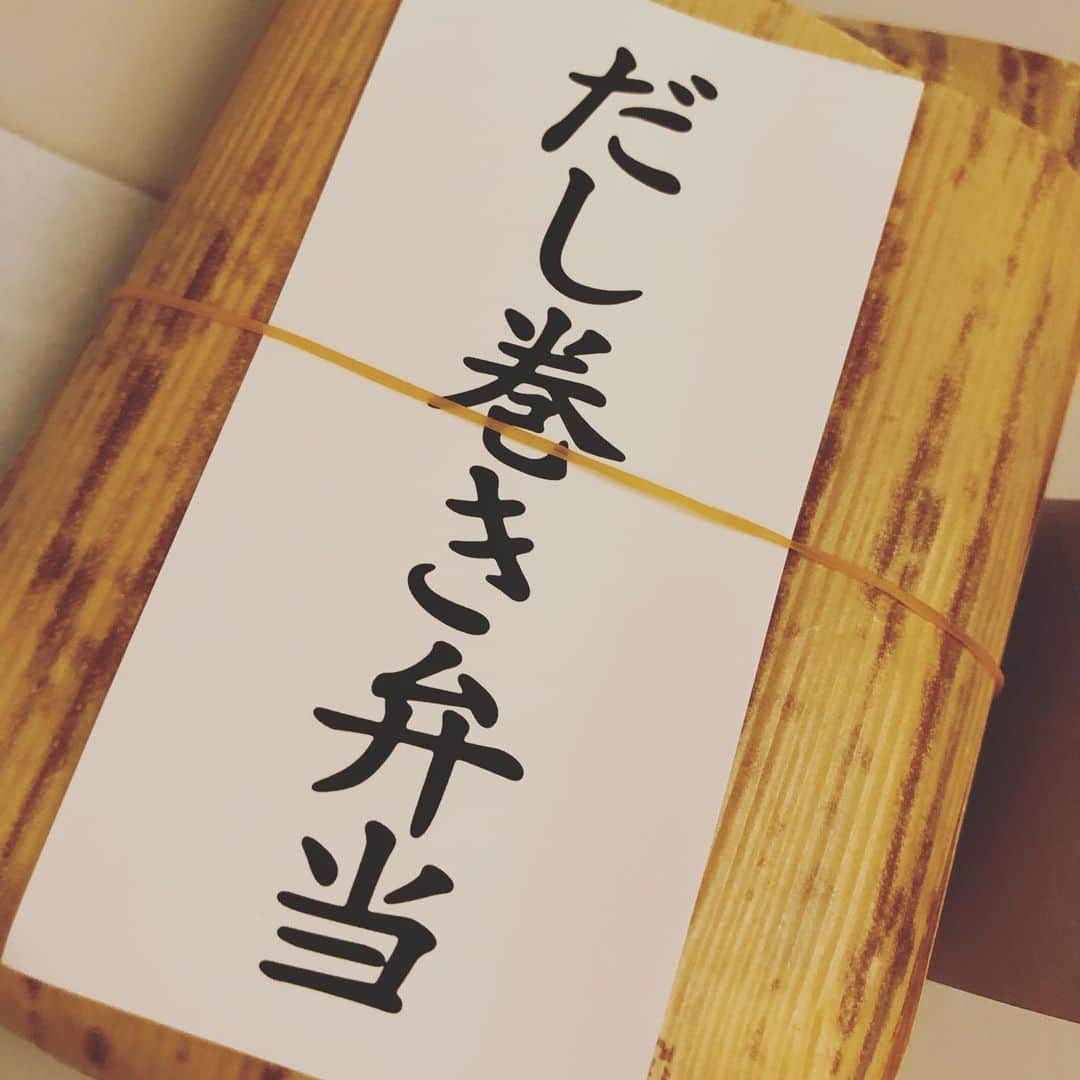 だし巻き弁当